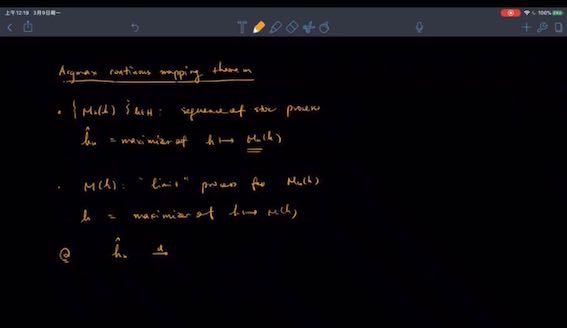 上午12:19 3月9日周一
100%
Argmax continuous mapping theorem
• { Mₙ(h) } h∈H : sequence of stoc process
ĥₙ = maximizer of h ↦ Mₙ(h)
• M(h) : "limit" process for Mₙ(h)
h = maximizer of h ↦ M(h)
Q ĥₙ d→